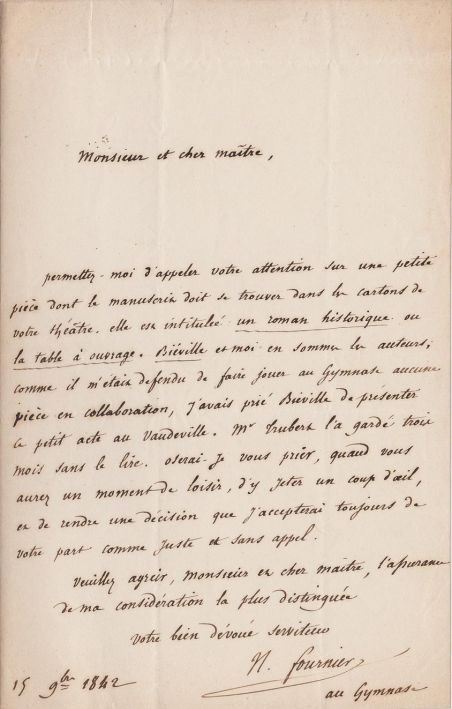 Monsieur et cher maître,
permettez-moi d'appeler votre attention sur une petite
pièce dont le manuscrit doit se trouver dans les cartons de
votre théâtre. elle est intitulée un roman historique ou
la table à ouvrage. Biéville et moi en sommes les auteurs;
comme il m'était défendu de faire jouer au Gymnase aucune
pièce en collaboration, j'avais prié Biéville de présenter
ce petit acte au Vaudeville. Mr Trubert l'a gardé trois
mois sans le lire. oserai-je vous prier, quand vous
aurez un moment de loisir, d'y jeter un coup d'œil,
et de rendre une décision que j'accepterai toujours de
votre part comme juste et sans appel.
Veuillez agréer, monsieur et cher maître, l'assurance
de ma considération la plus distinguée
votre bien dévoué serviteur
N. fournier
au Gymnase
15 9bre 1842